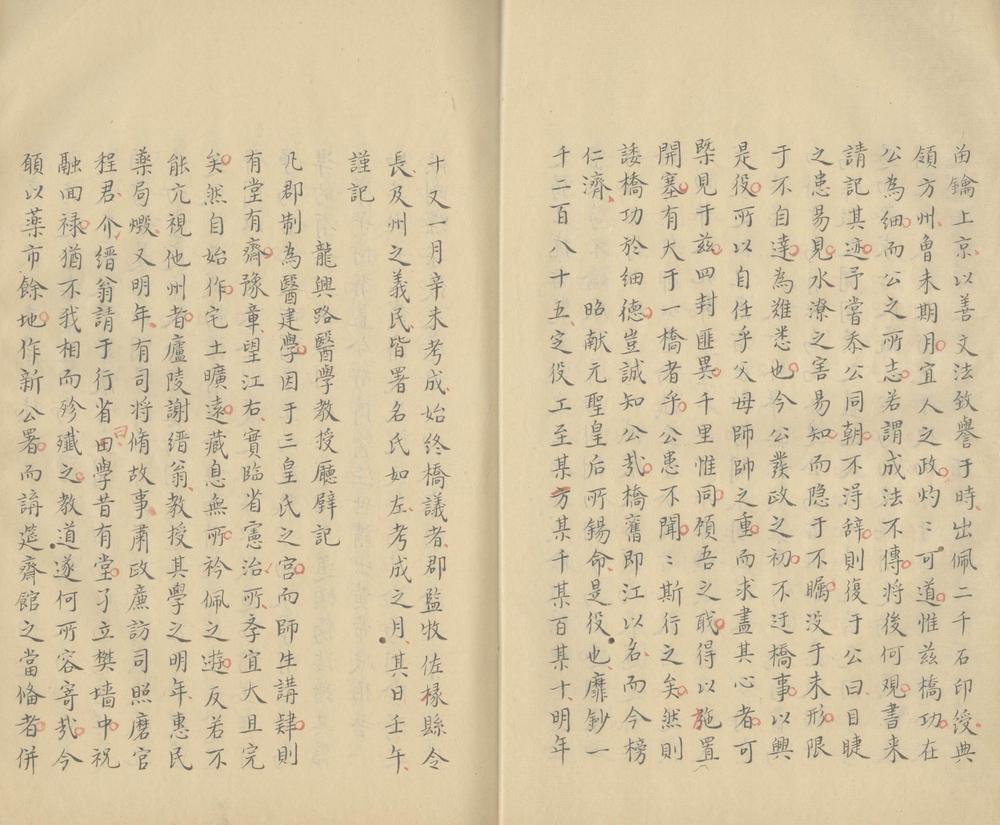 鑰上京以善文法致譽于時出佩二千石印綬典
領方州魯未期月宜人之政灼〻可道惟茲橋功在
公為細而公之所志若謂成法不傳將後何觀書来
請記其迹予嘗忝公同朝不淂辞則復于公曰目睫
之患易見水潦之害易知而隐于不矚没于未形限
于不自達為難悉也今公發政之初不迂橋事以興
是役所以自任乎父母師帥之重而求盡其心者可
槩見于兹四封匪異千里惟同傾吾之戢得以施置
開塞有大于一橋者乎公患不聞〻斯行之矣然則
諉橋功於細德豈誠知公㢤橋舊即江以名而今榜
仁濟昭献元聖皇后所錫命是役也靡鈔一
千二百八十五定役工至某方某千某百某十明年
十又一月辛未考成始終橋議者郡監牧佐椽縣令
長及州之義民皆署名氏如左考成之月其日壬午
謹記
龍興路醫學教授廳壁記
凡郡制為醫建學因于三皇氏之宮而師生講肄則
有堂有齋豫章望江右實臨省憲治所孝宜大且完
矣然自始作宅土曠遠藏息無所衿佩之遊反若不
能亢視他州者廬陵謝縉翁教授其學之明年惠民
薬局燬又明年有司将脩故事肅政廉訪司照磨官
程君介縉翁請于行省曰學昔有堂了立樊墙中祝
融回禄猶不我相而殄殱之教道遂何所容寄㢤今
頋以薬市餘地作新公署而講筵齋館之當俻者併